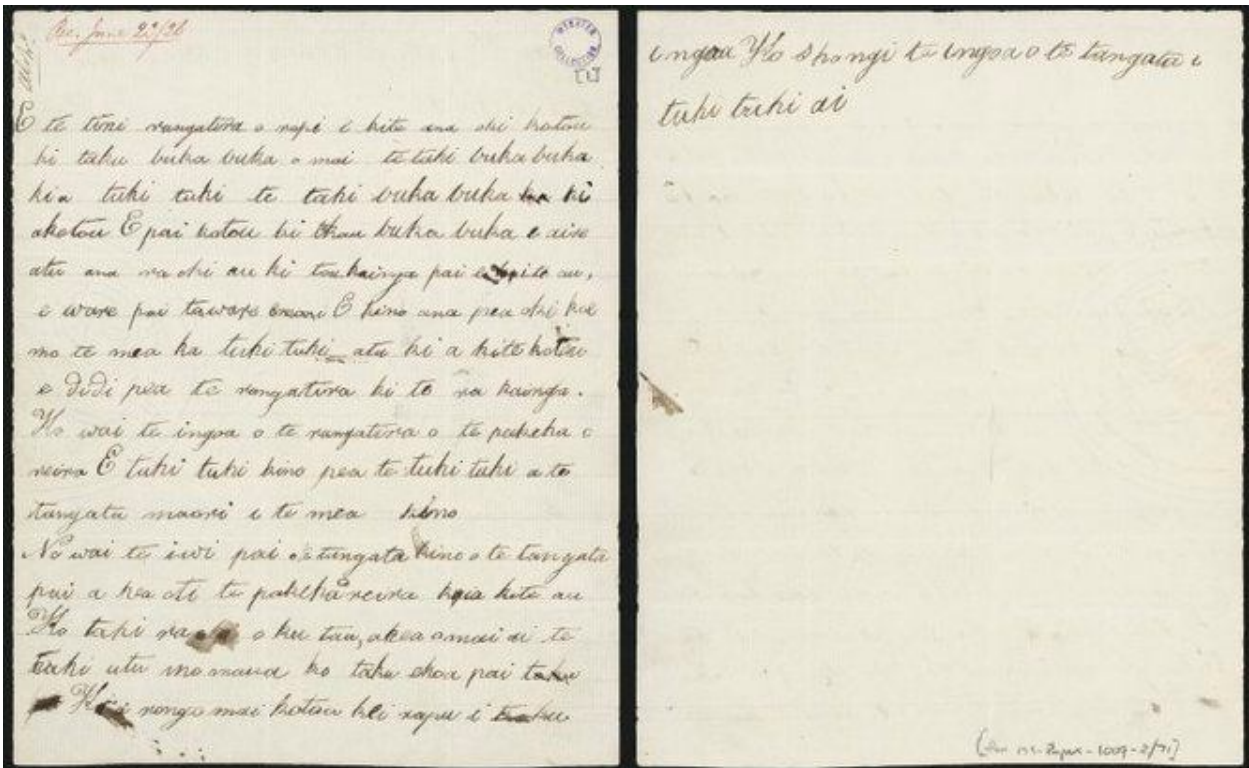 Rec. June 22/26
WEBSTER COLLECTION
[1]
E te tini rangatira o ropi e kite ana oki koutou
ki taku buka buka o mai te taki buka buka
kia tuki tuki te taki buka buka ki
akotou E pai kotou ki buka buka e aire
atu ana ra oki au ki tou kainga pai au,
e ware pai taware E kino ana pea oki koe
mo te mea ka tuki tuki atu ki a kite kotou
e didi pea te rangatira ki to ra kainga.
Ko wai te ingoa o te rangatira o te pakeha o
reira E tuki tuki kino pea te tuki tuki a te
tangata maori i te mea kino
No wai te iwi pai o te tangata kino o te tangata
pai a hea oti te pakeha o reira kia kite au
Ko taki ra o ku tau, akea omai ai te
taki utu mo maua ko taku pai
Kia rongo mai kotou kei rapu i
ingoa Ko shongi te ingoa o te tangata i
tuki tuki ai